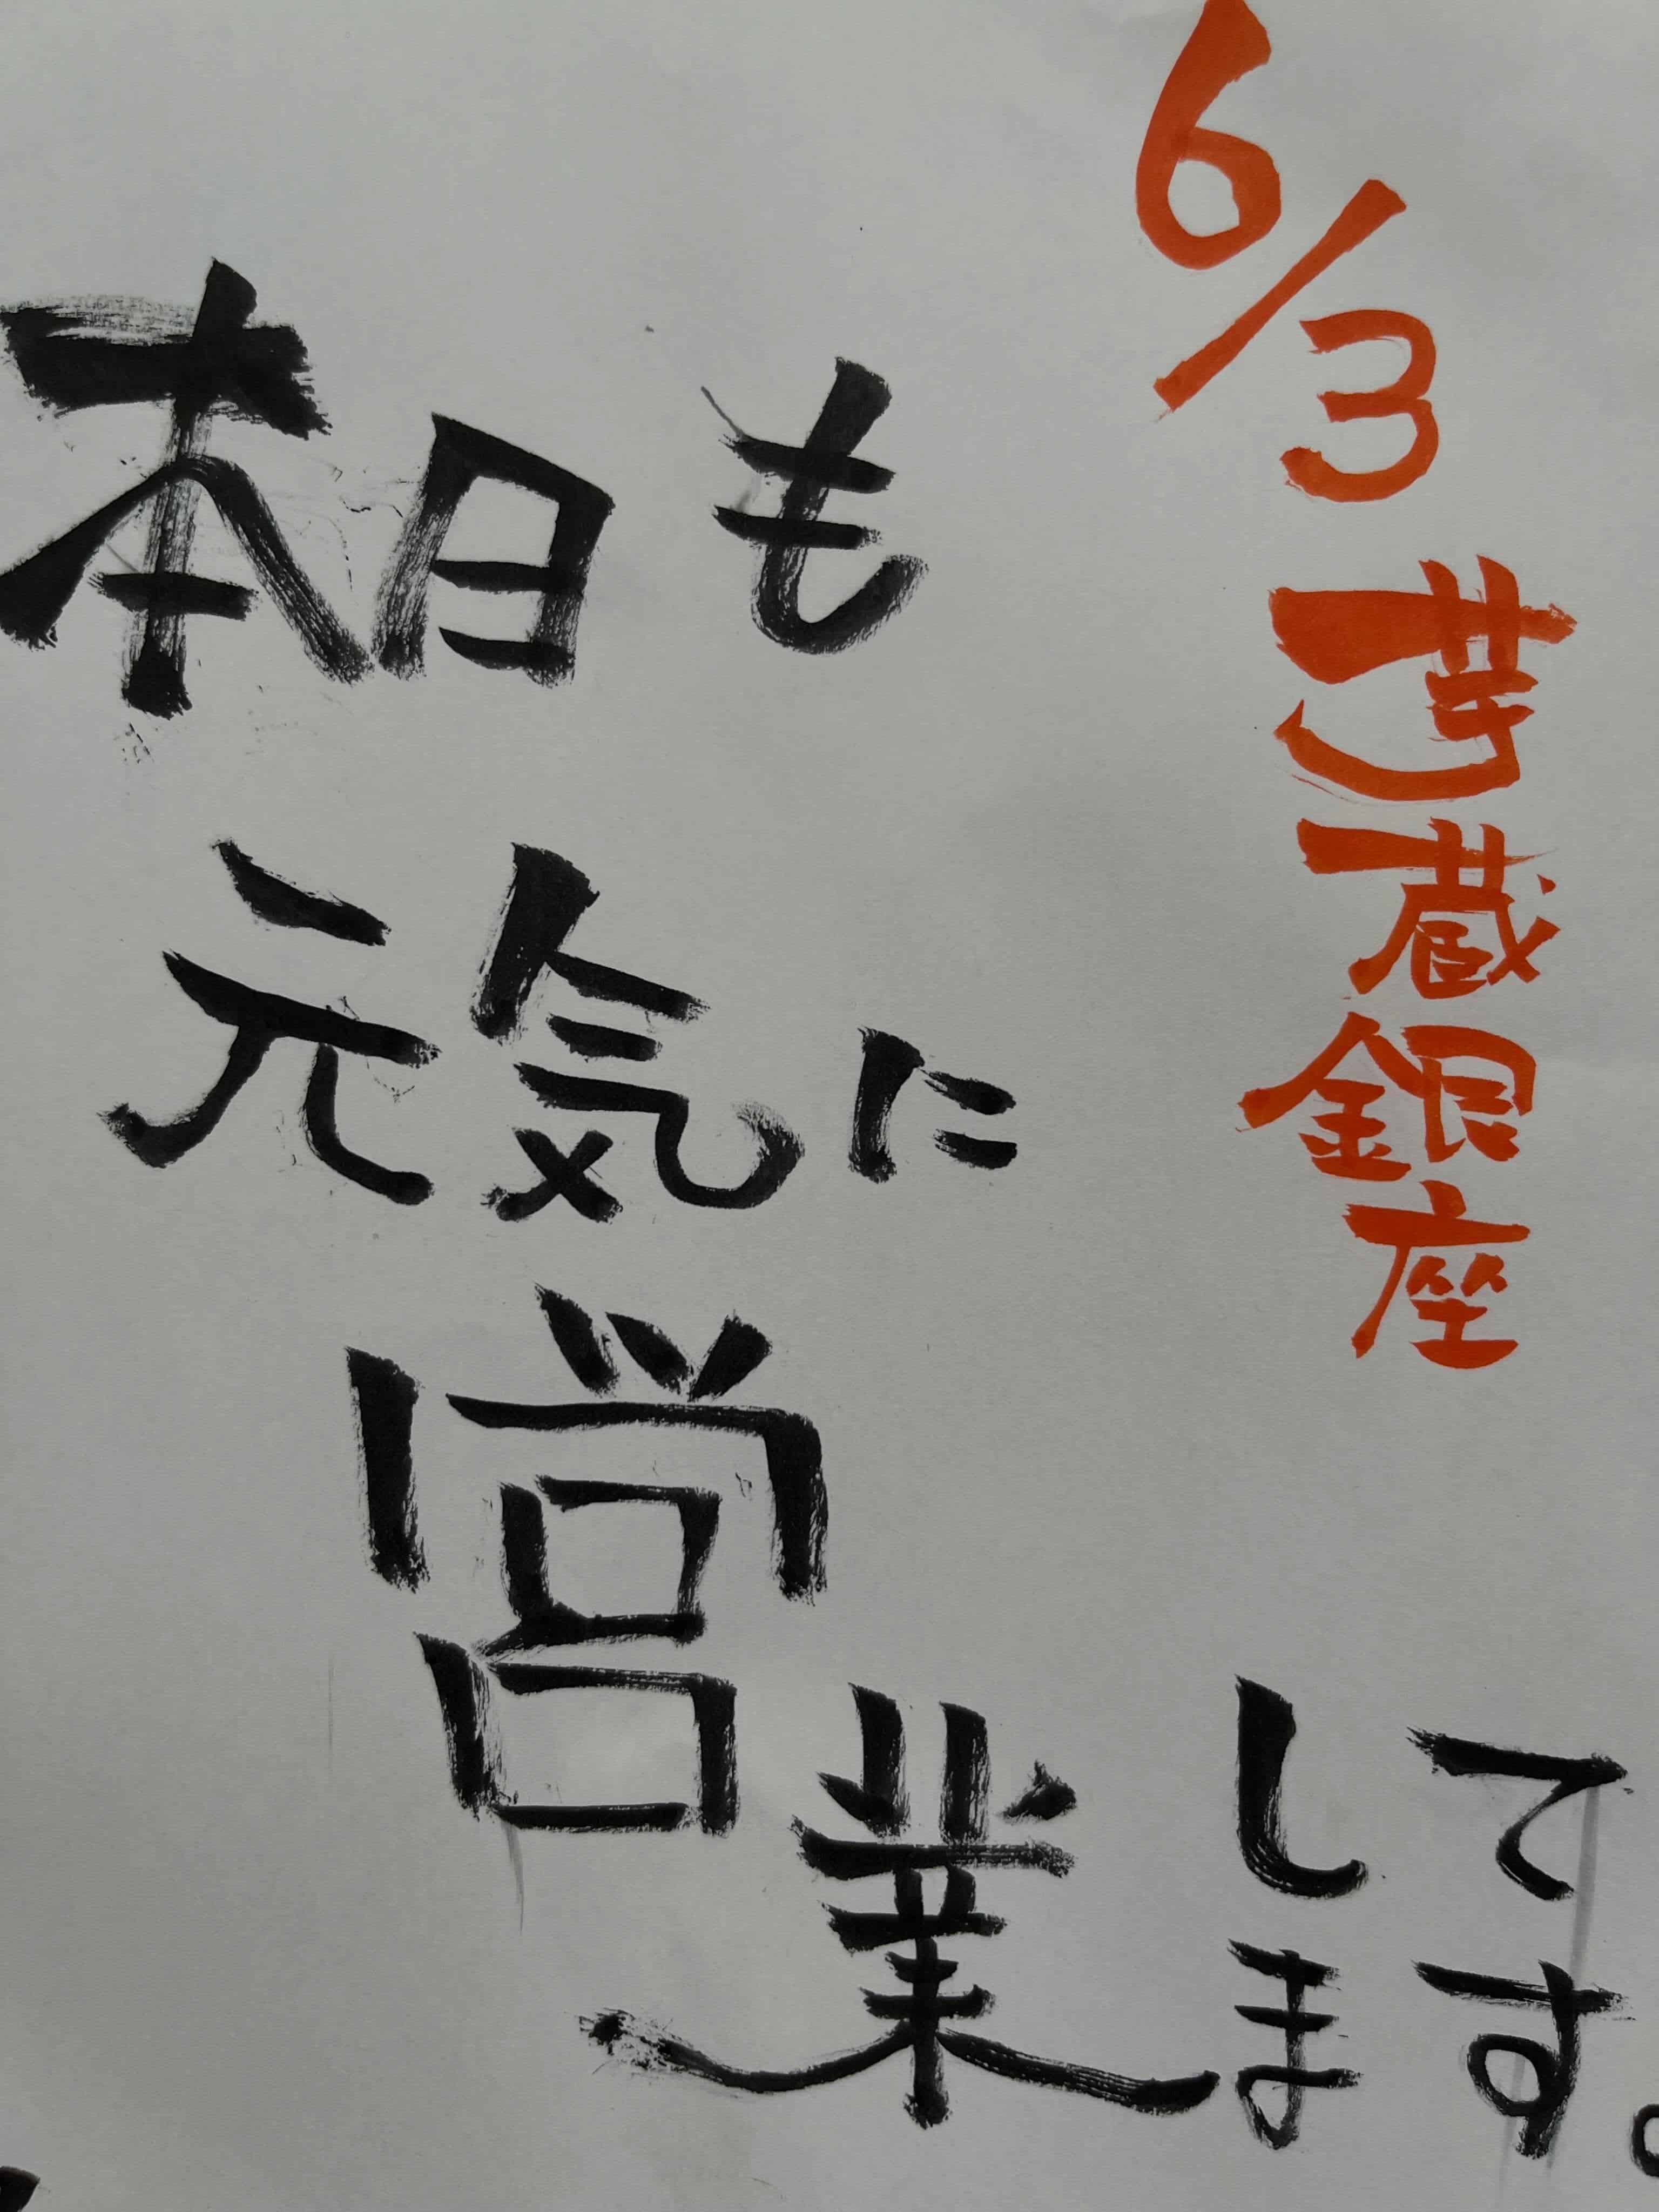 6/3 芋蔵銀座
本日も
元気に
営業して
ます。